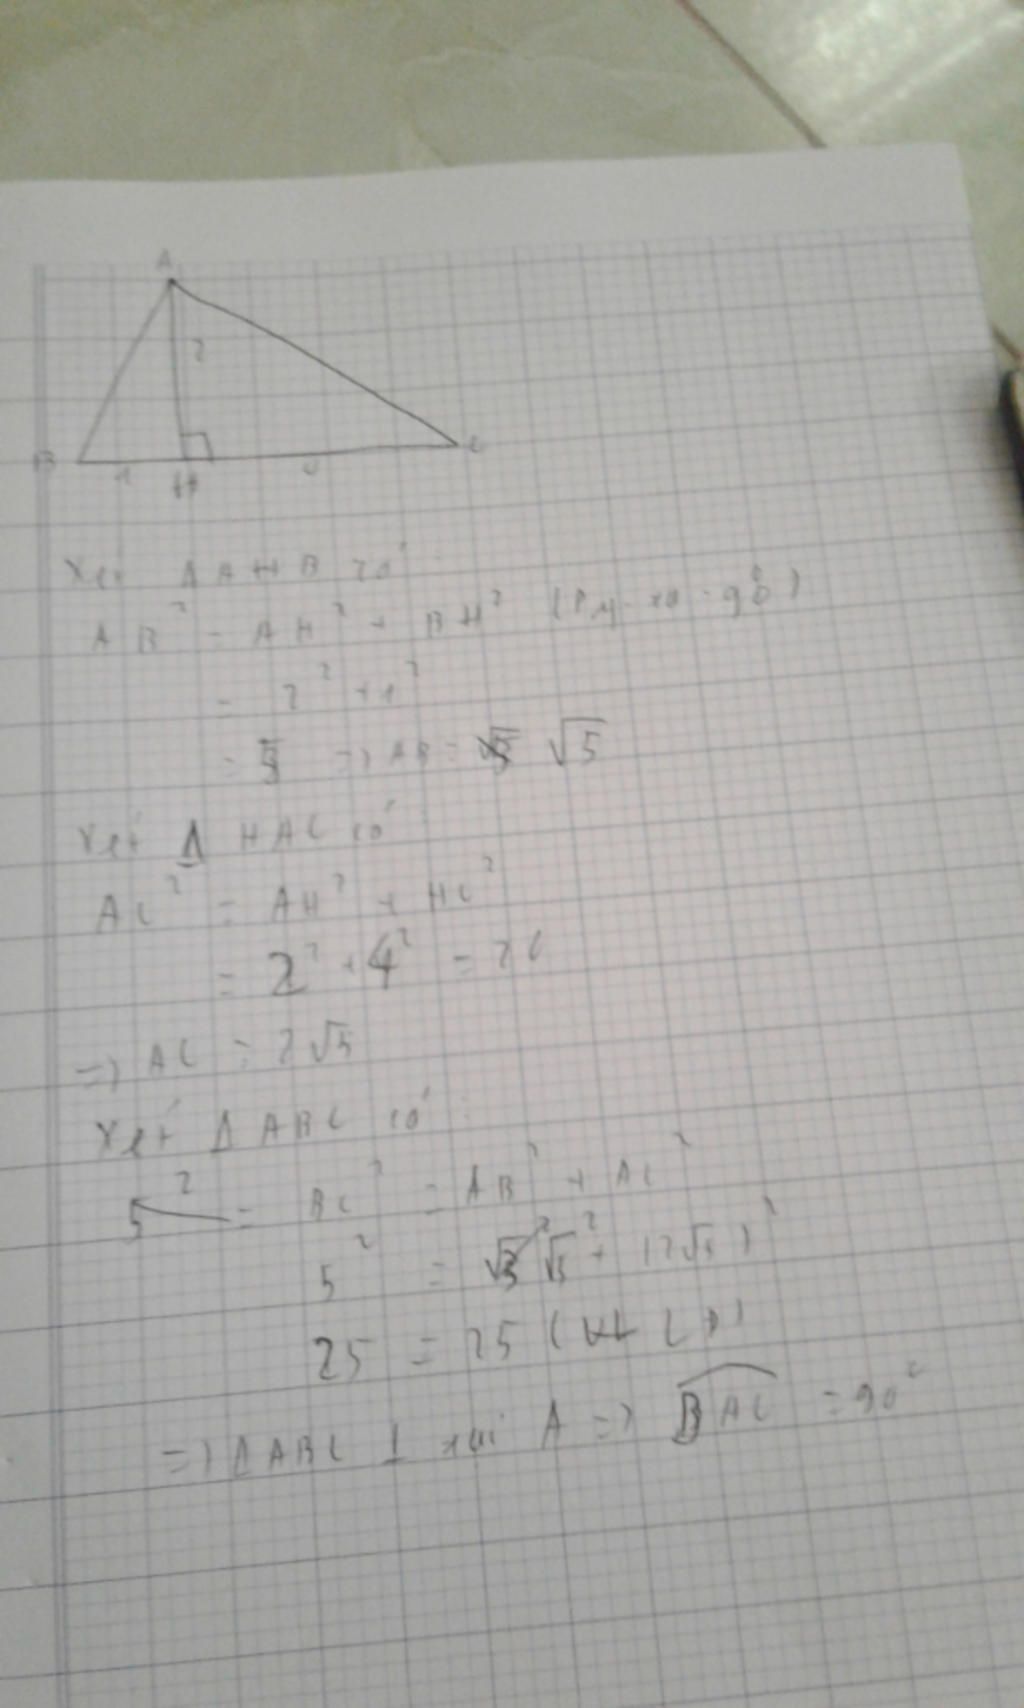 A
2
B 1 H 4 C
Xét Δ AHB có :
AB² = AH² + BH² (Py-ta-go)
= 2² + 1²
= 5 => AB = √5
Xét Δ HAC có
AC² = AH² + HC²
= 2² + 4² = 20
=> AC = 2√5
Xét Δ ABC có :
BC² = AB² + AC²
5² = √5² + (2√5)²
25 = 25 (LĐ)
=> Δ ABC ⊥ tại A => BAC = 90°